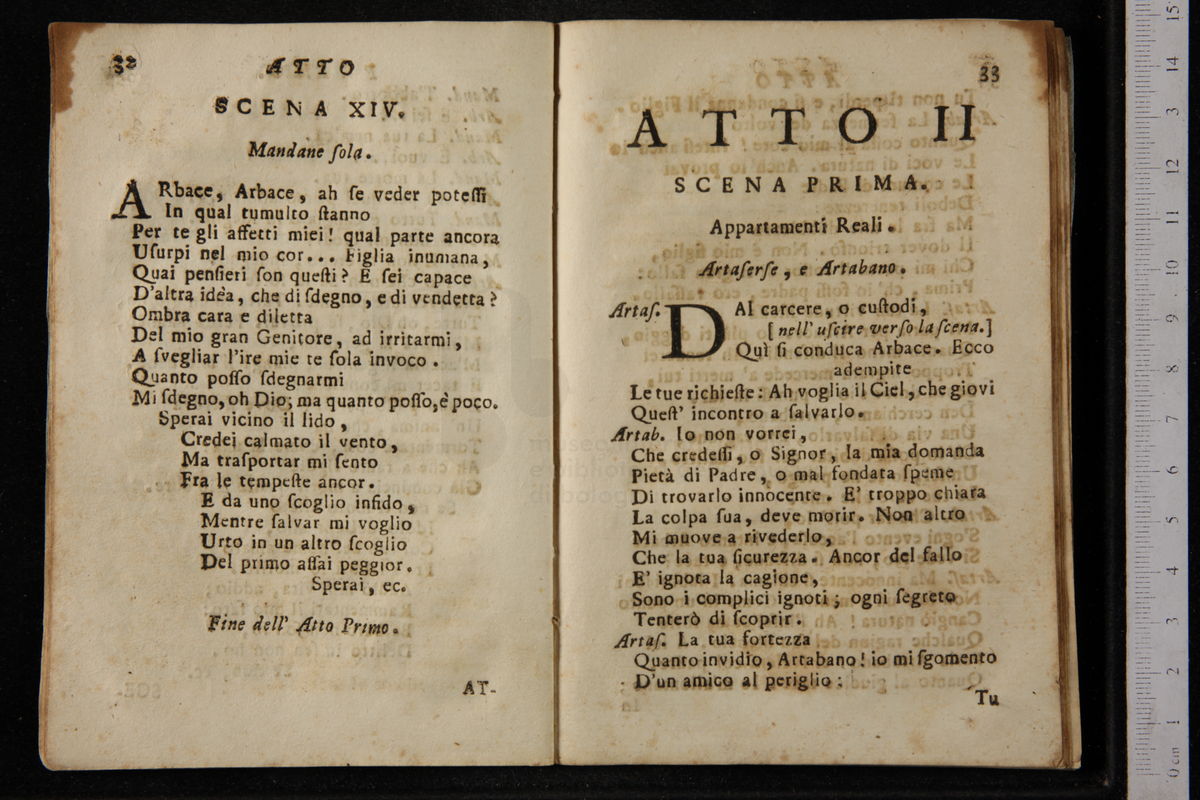 32
ATTO
SCENA XIV.
Mandane ſola.
ARbace, Arbace, ah ſe veder poteſſi
In qual tumulto ſtanno
Per te gli affetti miei! qual parte ancora
Uſurpi nel mio cor... Figlia inumana,
Quai penſieri ſon queſti? E ſei capace
D'altra idèa, che di ſdegno, e di vendetta?
Ombra cara e diletta
Del mio gran Genitore, ad irritarmi,
A ſvegliar l'ire mie te ſola invoco.
Quanto poſſo ſdegnarmi
Mi ſdegno, oh Dio; ma quanto poſſo, è poco.
Sperai vicino il lido,
Credei calmato il vento,
Ma traſportar mi ſento
Fra le tempeſte ancor.
E da uno ſcoglio infido,
Mentre ſalvar mi voglio
Urto in un altro ſcoglio
Del primo aſſai peggior.
Sperai, ec.
Fine dell' Atto Primo.
AT-
33
ATTO II
SCENA PRIMA.
Appartamenti Reali.
Artaſerſe, e Artabano.
Artaſ. DAl carcere, o cuſtodi,
[nell' uſcire verſo la ſcena.]
Quì ſi conduca Arbace. Ecco
adempite
Le tue richieſte: Ah voglia il Ciel, che giovi
Queſt' incontro a ſalvarlo.
Artab. Io non vorrei,
Che credeſſi, o Signor, la mia domanda
Pietà di Padre, o mal fondata ſpeme
Di trovarlo innocente. E' troppo chiara
La colpa ſua, deve morir. Non altro
Mi muove a rivederlo,
Che la tua ſicurezza. Ancor del fallo
E' ignota la cagione,
Sono i complici ignoti; ogni ſegreto
Tenterò di ſcoprir.
Artaſ. La tua fortezza
Quanto invidio, Artabano! io mi ſgomento
D'un amico al periglio:
Tu